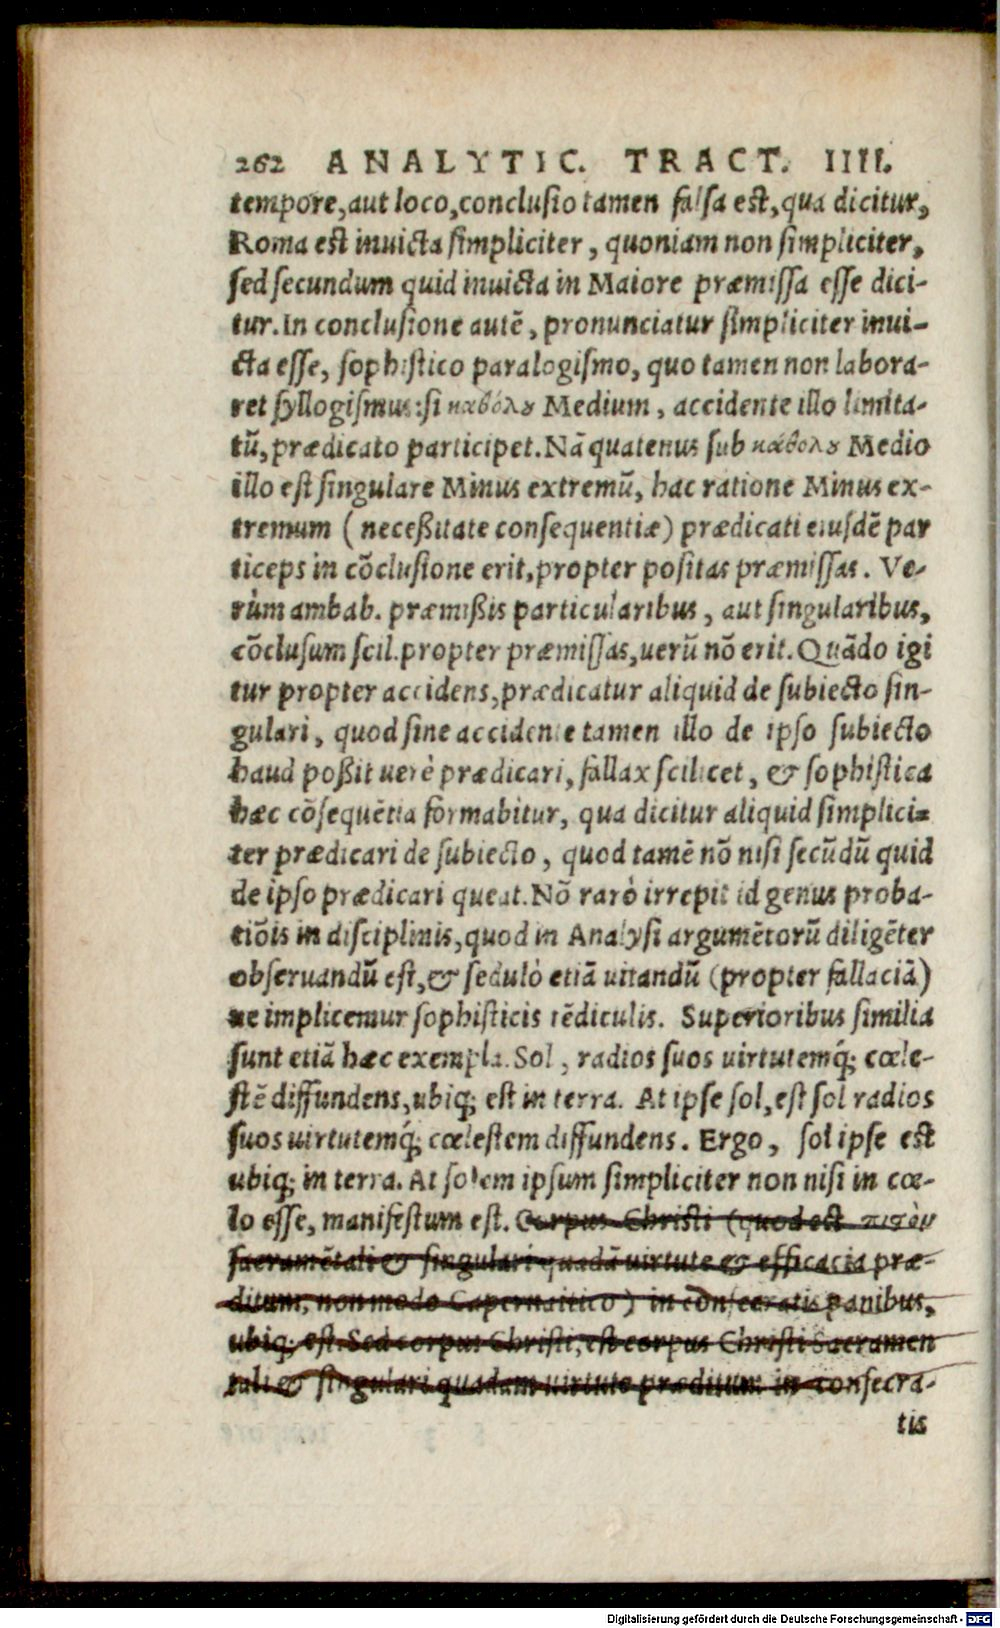 262 ANALYTIC. TRACT. IIII.
tempore, aut loco, conclusio tamen falsa est, qua dicitur,
Roma est inuicta simpliciter, quoniam non simpliciter,
sed secundum quid inuicta in Maiore præmissa esse dici-
tur. In conclusione autē, pronunciatur simpliciter inui-
cta esse, sophistico paralogismo, quo tamen non labora-
ret syllogismus: si καθόλου Medium, accidente illo limita-
tū, prædicato participet. Nā quatenus sub καθόλου Medio
illo est singulare Minus extremū, hac ratione Minus ex-
tremum (neceßitate consequentiæ) prædicati eiusdē par
ticeps in cōclusione erit, propter positas præmissas. Ve-
rùm ambab. præmißis particularibus, aut singularibus,
cōclusum scil. propter præmissas, uerū nō erit. Quādo igi
tur propter accidens, prædicatur aliquid de subiecto sin-
gulari, quod sine accidente tamen illo de ipso subiecto
haud poßit uerè prædicari, fallax scilicet, & sophistica
hæc cōsequētia formabitur, qua dicitur aliquid simplici=
ter prædicari de subiecto, quod tamē nō nisi secūdū quid
de ipso prædicari queat. Nō rarò irrepit id genus proba-
tiōis in disciplinis, quod in Analysi argumētorū diligēter
obseruandū est, & sedulò etiā uitandū (propter fallaciā)
ne implicemur sophisticis rēdiculis. Superioribus similia
sunt etiā hæc exempla. Sol, radios suos uirtutemq́; cœle-
stē diffundens, ubiq; est in terra. At ipse sol, est sol radios
suos uirtutemq́; cœlestem diffundens. Ergo, sol ipse est
ubiq; in terra. At solem ipsum simpliciter non nisi in cœ-
lo esse, manifestum est. Corpus Christi (quod est
sacramētali & singulari quadā uirtute & efficacia præ-
ditum, non modo Capernaitico) in consecratis panibus,
ubiq; est. Sed corpus Christi, est corpus Christi Sacramen
tali & singulari quadam uirtute præditum in consecra-
tis
Digitalisierung gefördert durch die Deutsche Forschungsgemeinschaft - DFG